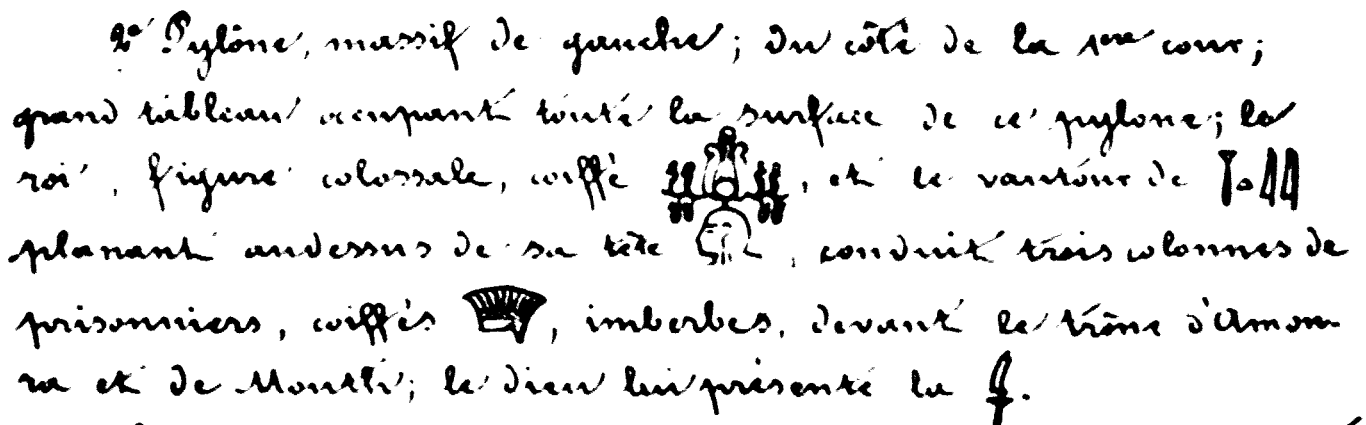 2e Pylône, massif de gauche; du côté de la 1ère cour;
grand tableau occupant toute la surface de ce pylone; le
roi, figure colossale, coiffé , et le vautour de
planant audessus de sa tête , conduit trois colonnes de
prisonniers, coiffés , imberbes, devant le trône d'Amon-
ra et de Mouth; le dieu lui présente la .